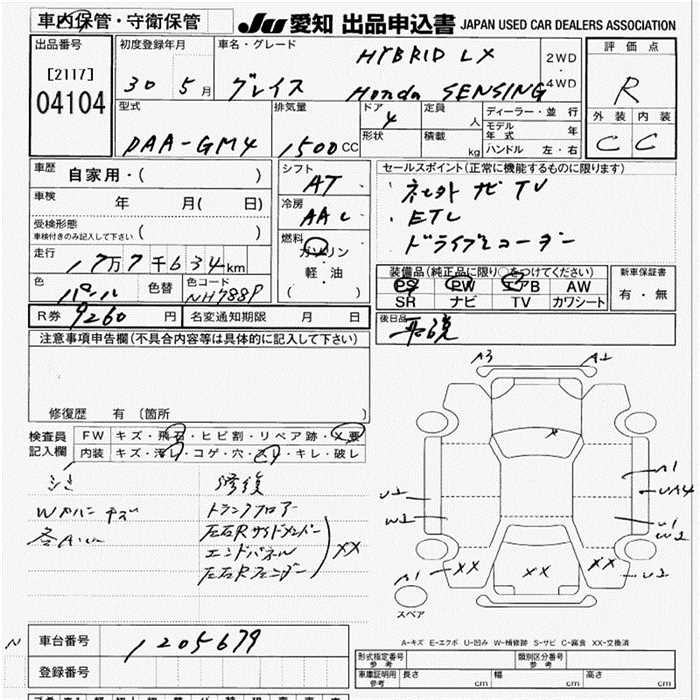 車内保管・守衛保管
JU 愛知 出品申込書 JAPAN USED CAR DEALERS ASSOCIATION
出品番号
[2117]
04104
初度登録年月
30 5月
車名・グレード
グレイス
HYBRID LX
Honda SENSING
2WD
・
4WD
評価点
R
外装 内装
C C
型式
DAA-GM4
排気量
1500cc
ドア
4
形状
定員
人
積載
kg
ディーラー・並行
モデル年式 年
ハンドル 左・右
車歴
自家用・( )
車検
年 月( 日)
受検形態
車検付きのみ記入して下さい ・( )
走行
17万7千634km
色
パール
色替
色コード
NH788P
R券 9260 円
名変通知期限 月 日
シフト
AT
冷房
AAC
燃料
ガソリン
・
軽・油
( )
セールスポイント(正常に機能するものに限ります)
・社外ナビTV
・ETC
・ドライブレコーダー
装備品(純正品に限り○をつけてください)
PS PW エアB AW
SR ナビ TV カワシート
新車保証書
有・無
後日品
注意事項申告欄(不具合内容等は具体的に記入して下さい)
修復歴 有 〔箇所 〕
検査員
記入欄
FW キズ・飛石・ヒビ割・リペア跡・X要
内装 キズ・汚レ・コゲ・穴・スレ・キレ・破レ
Wカバーキズ
修復
トランクフロアー
左右Rサイドメンバー
エンドパネル
左右Rフェンダー
XX
A3 A2
X
U2
W2
A1
UA4
U1
W2
A1
XX XX XX
U2
スペア
A-キズ E-エクボ U-凹み W-補修跡 S-サビ C-腐食 XX-交換済
N
車台番号 1205679
登録番号
形式指定番号
参考
類別区分番号
参考
車庫証明用
参考
長さ cm
幅 cm
高さ cm